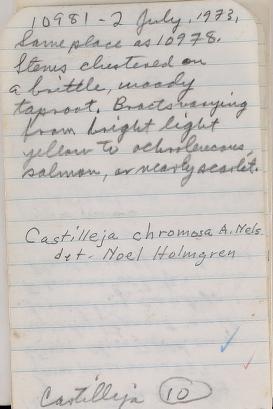 10981 - 2 July, 1973,
Same place as 10978.
Stems clustered on
a brittle, woody
taproot. Bracts varying
from bright light
yellow to ochroleucous,
salmon, or nearly scarlet.
Castilleja chromosa A. Nels.
det. Noel Holmgren
Castilleja 10